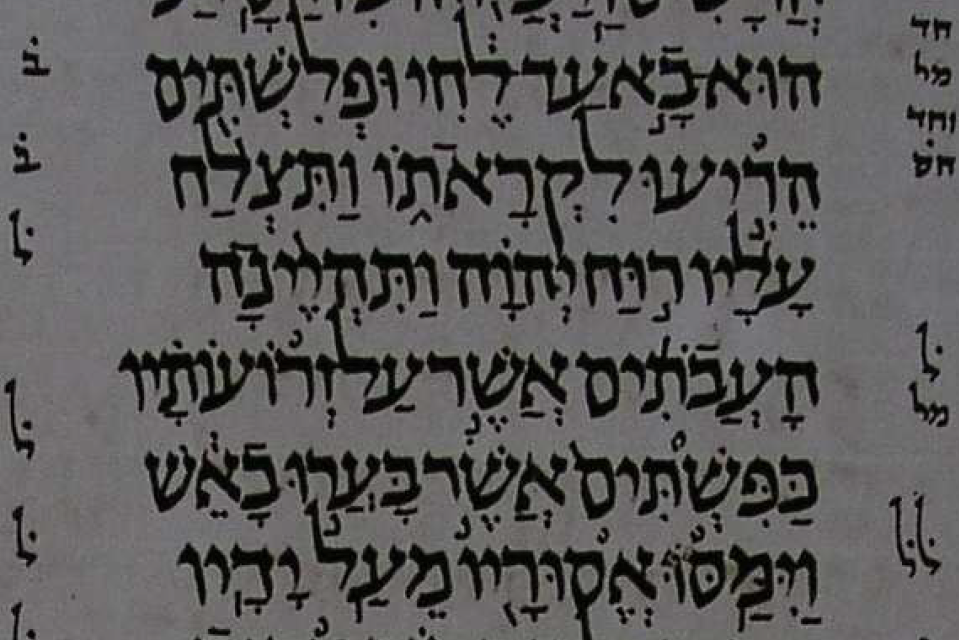 הוּא בָא עַד לֶחִי וּפְלִשְׁתִּים
הֵרִיעוּ לִקְרָאתוֹ וַתִּצְלַח
עָלָיו רוּחַ יְהוָה וַתִּהְיֶינָה
הָעֲבֹתִים אֲשֶׁר עַל זְרוֹעוֹתָיו
כַּפִּשְׁתִּים אֲשֶׁר בָּעֲרוּ בָאֵשׁ
וַיִּמַּסּוּ אֱסוּרָיו מֵעַל יָדָיו
חד
מל
וחד
חס
ל
מל
ל ל
ב
ב
ל
ל
ל